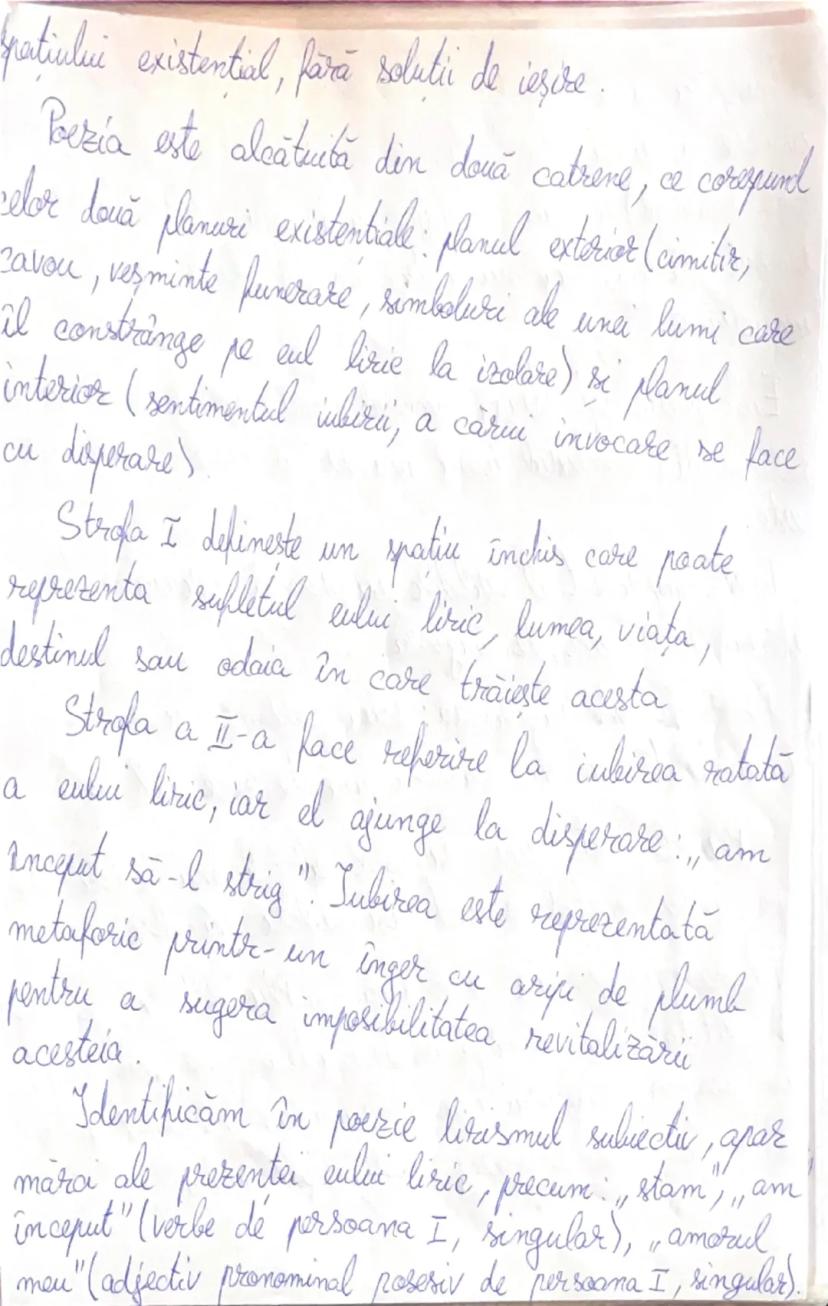 spațiului existențial, fără soluții de ieșire.
Poezia este alcătuită din două catrene, ce corespund
celor două planuri existențiale: planul exterior (cimitir,
cavou, veșminte funerare, simboluri ale unei lumi care
îl constrânge pe eul liric la izolare) și planul
interior (sentimentul iubirii, a cărui invocare se face
cu disperare)
Strofa I definește un spațiu închis care poate
reprezenta sufletul eului liric, lumea, viața,
destinul sau odaia în care trăiește acesta
Strofa a II-a face referire la iubirea ratată
a eului liric, iar el ajunge la disperare: „am
început să-l strig". Iubirea este reprezentată
metaforic printr-un înger cu aripi de plumb
pentru a sugera imposibilitatea revitalizării
acesteia.
Identificăm în poezie lirismul subiectiv, apar
mărci ale prezenței eului liric, precum: „stam", „am
început" (verbe de persoana I, singular), „amorul
meu" (adjectiv pronominal posesiv de persoana I, singular).